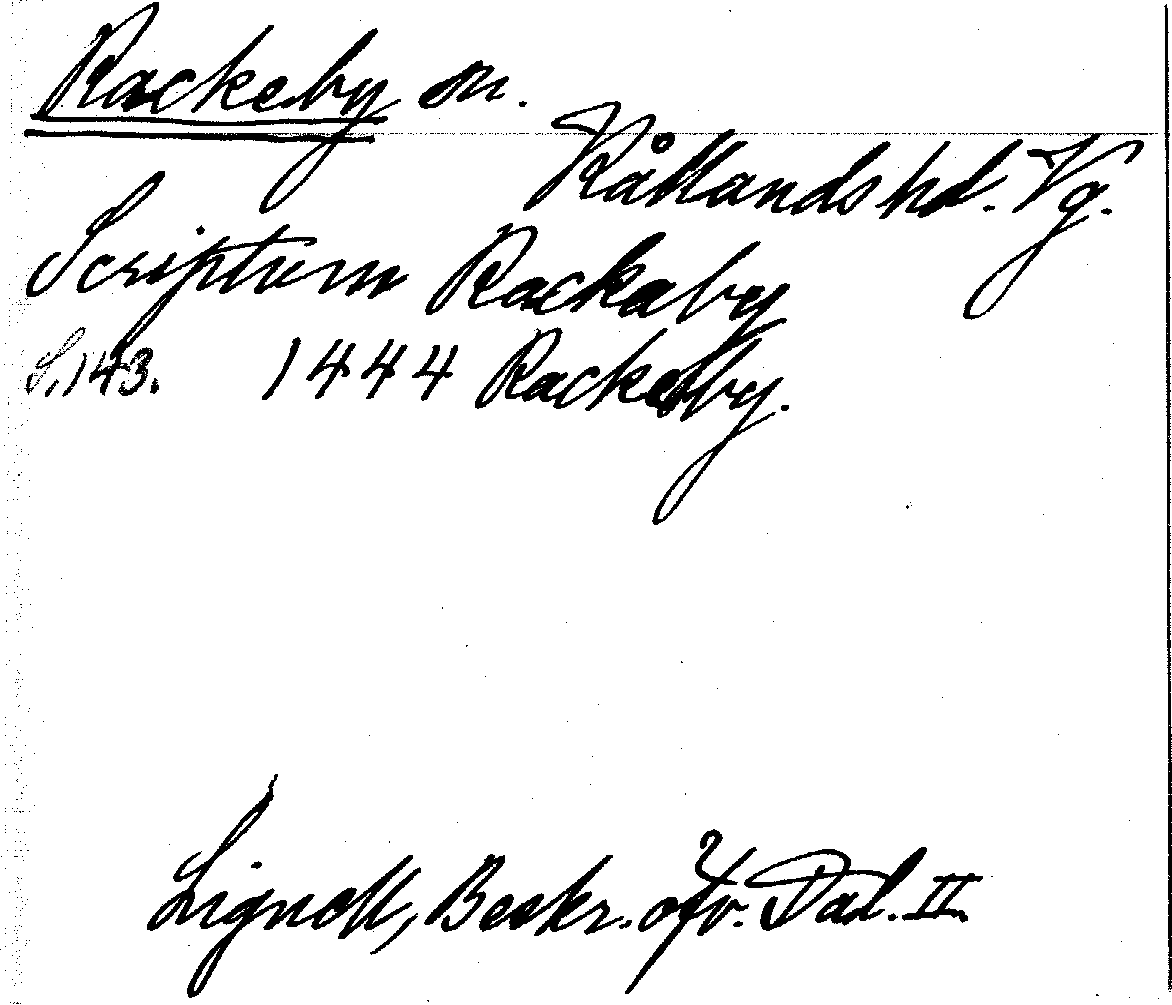 Rackeby sn.
Kållands hd. Vg.
Scriptum Rackaby
S. 143. 1444 Rackeby.
Lignell, Beskr. öfv. Dal. II.